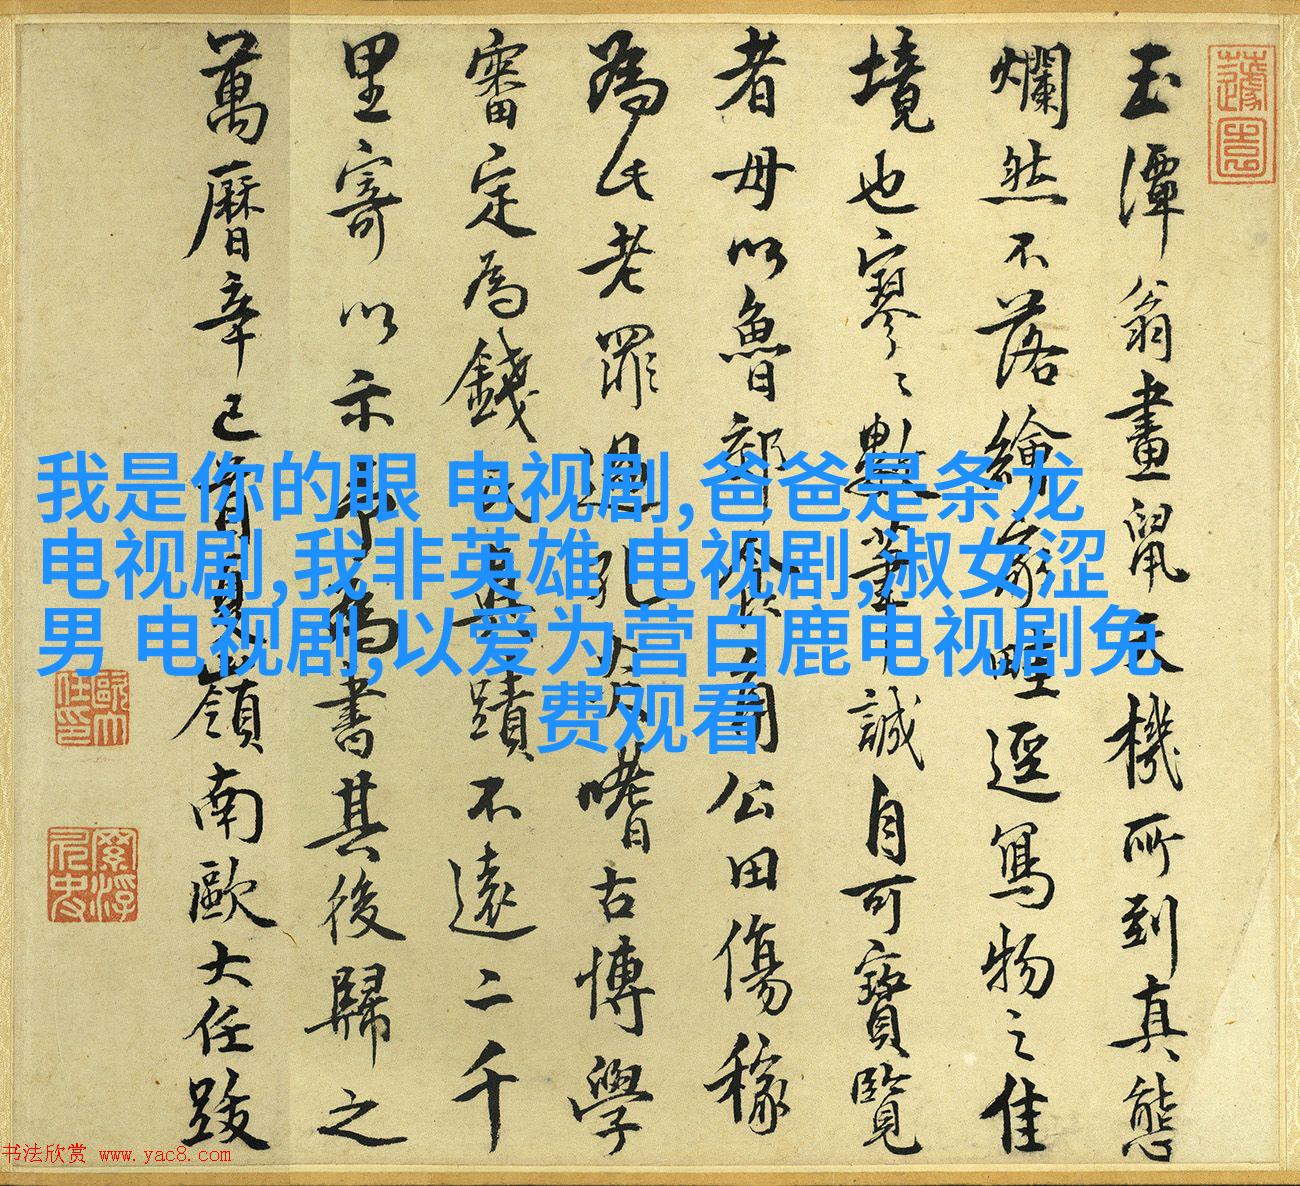 玉潭翁畫鼠天機所到真態
爛然不落繪家畦逕寫物之佳
境也寥〻數筆誠自可寶覽
者毋以魯郊食角公田傷稼
為此老罪過孔炎嗜古博學
審定為錢氏真蹟不遠二千
里寄以示予為書其後歸之
萬曆辛巳首夏嶺南歐大任跋
歐大任印
我是你的眼 电视剧,爸爸是条龙
电视剧,我非英雄 电视剧,淑女涩
男 电视剧,以爱为营白鹿电视剧免
费观看
书法欣赏 www.yac8.com